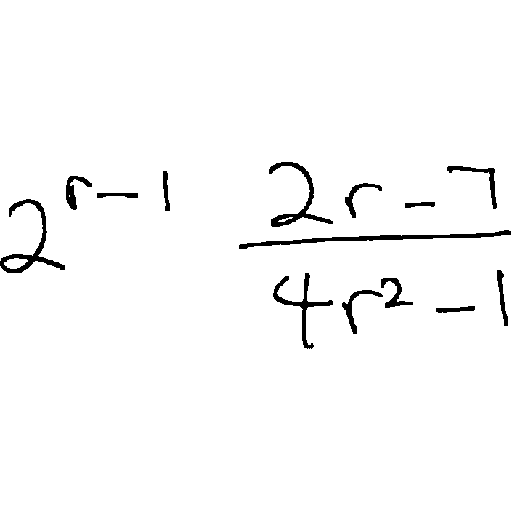 2^{r-1} \frac{2r-7}{4r^2-1}